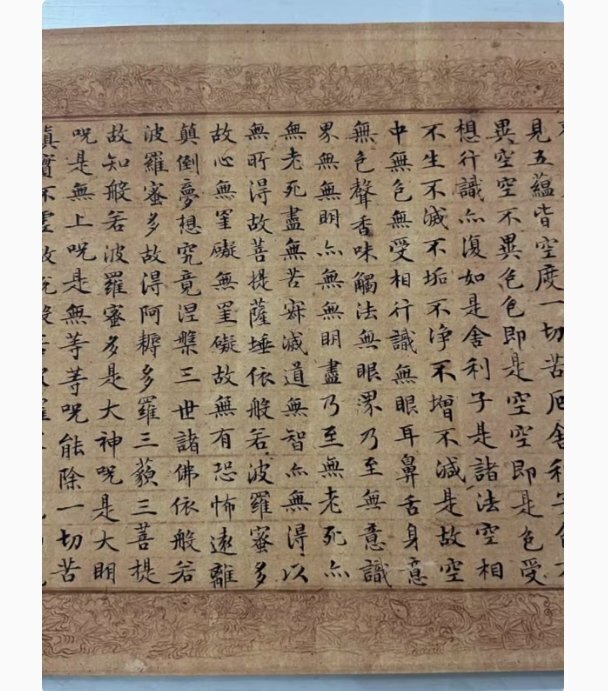 見五蘊皆空度一切苦厄舍利子色不
異空空不異色色即是空空即是色受
想行識亦復如是舍利子是諸法空相
不生不滅不垢不净不增不減是故空
中無色無受相行識無眼耳鼻舌身意
無色聲香味觸法無眼界乃至無意識
界無無明亦無無明盡乃至無老死亦
無老死盡無苦寂滅道無智亦無得以
無所得故菩提薩埵依般若波羅蜜多
故心無罣礙無罣礙故無有恐怖遠離
顛倒夢想究竟涅槃三世諸佛依般若
波羅蜜多故得阿耨多羅三藐三菩提
故知般若波羅蜜多是大神呪是大明
呪是無上呪是無等等呪能除一切苦
真實不虛故說般若波羅